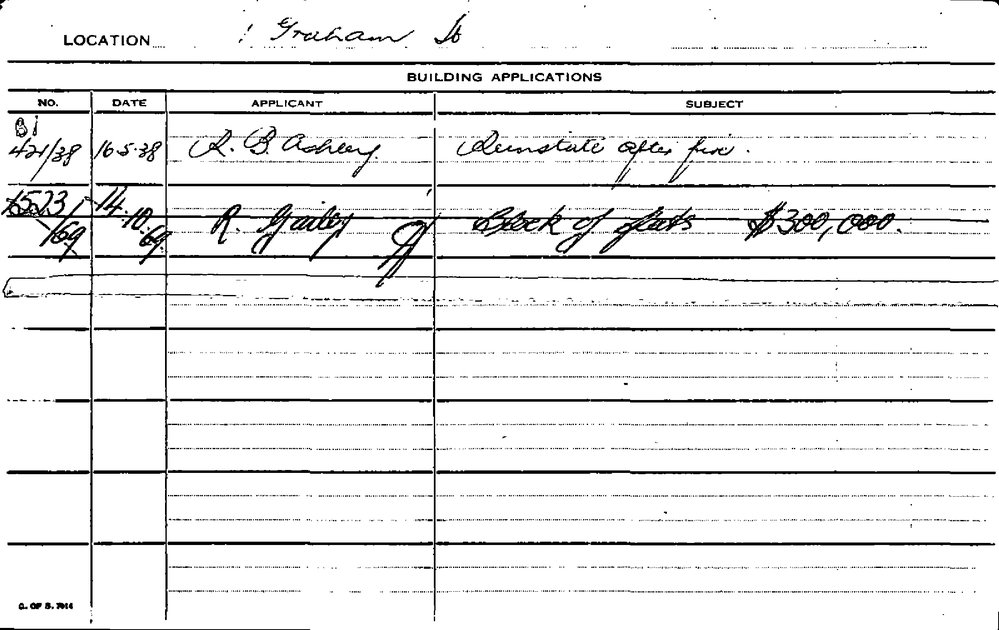 LOCATION 1 Graham St
BUILDING APPLICATIONS
NO. DATE APPLICANT SUBJECT
B1
421/38 16.5.38 R. B. Ashley Reinstate after fire.
1523/69 14.10.69 R. Gailey Block of flats $300,000.
C. OF S. 7014